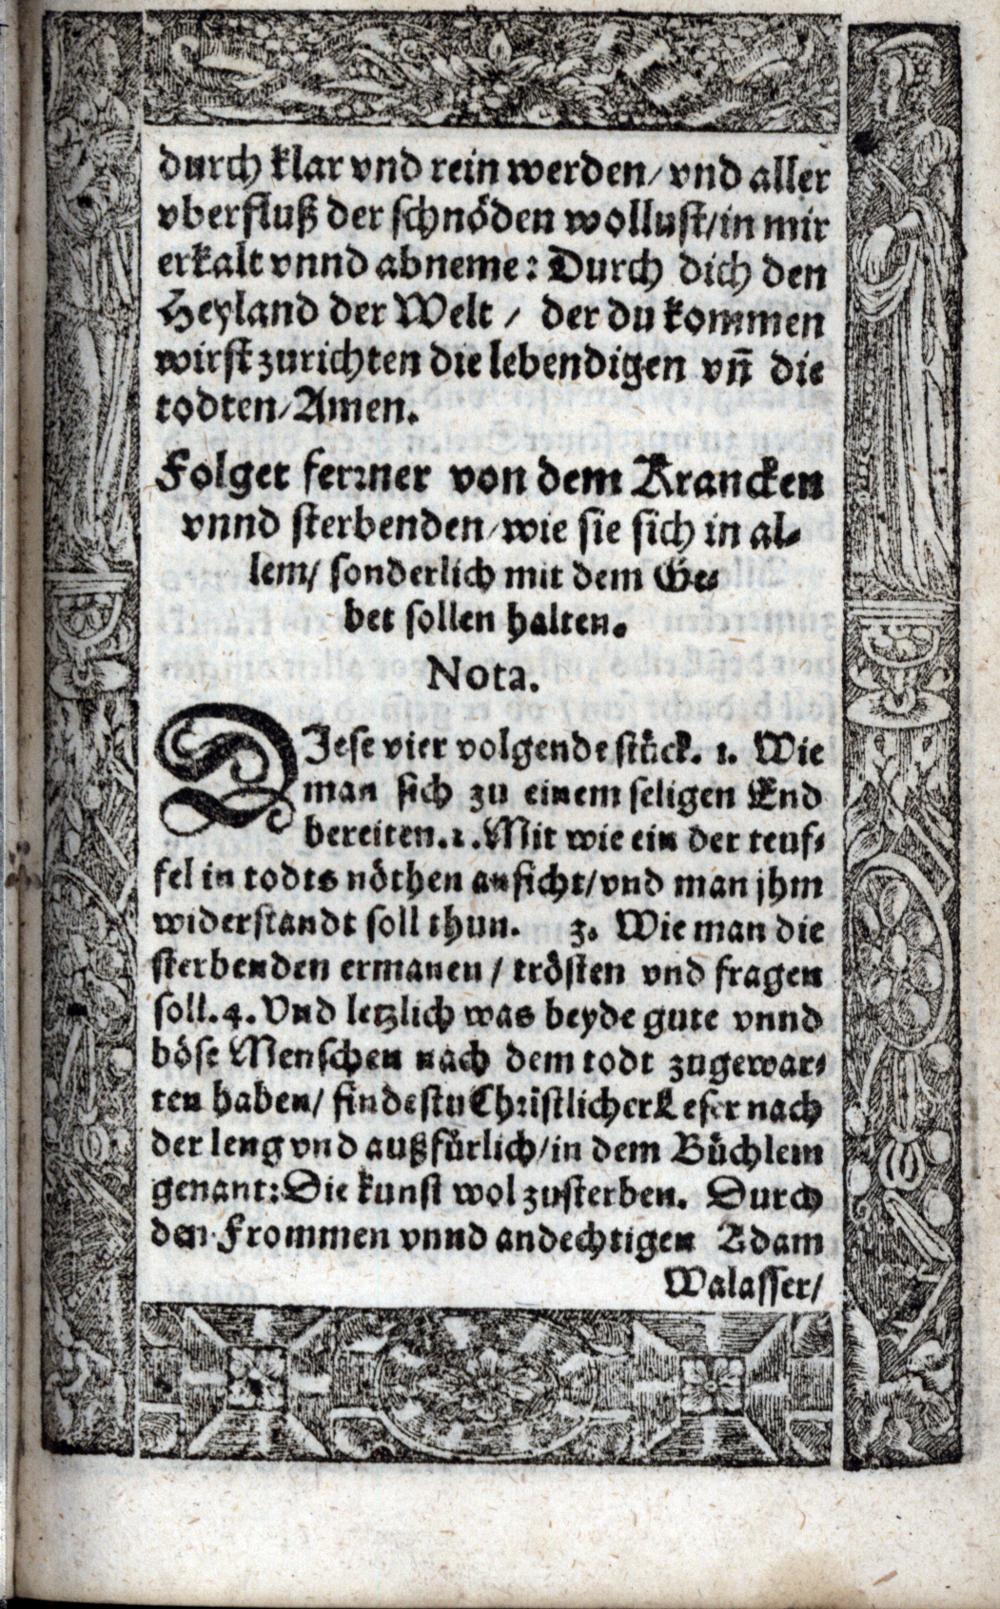 durch klar vnd rein werden/ vnd aller
vberfluß der schnöden wollust/ in mir
erkalt vnnd abneme: Durch dich den
Heyland der Welt / der du kommen
wirst zurichten die lebendigen vñ die
todten/ Amen.
Folget ferꝛner von dem Krancken
vnnd sterbenden/ wie sie sich in al⸗
lem/ sonderlich mit dem Ge⸗
bet sollen halten.
Nota.
DJese vier volgende stück. 1. Wie
man sich zu einem seligen End
bereiten. 2. Mit wie ein der teuf⸗
fel in todts nöthen anficht/ vnd man jhm
widerstandt soll thun. 3. Wie man die
sterbenden ermanen / trösten vnd fragen
soll. 4. Vnd letzlich was beyde gute vnnd
böse Menschen nach dem todt zugewar⸗
ten haben/ findestu Chꝛistlicher Leser nach
der leng vnd außfürlich/ in dem Büchlein
genant: Die kunst wol zusterben. Durch
den Frommen vnnd andechtigen Adam
Walasser/